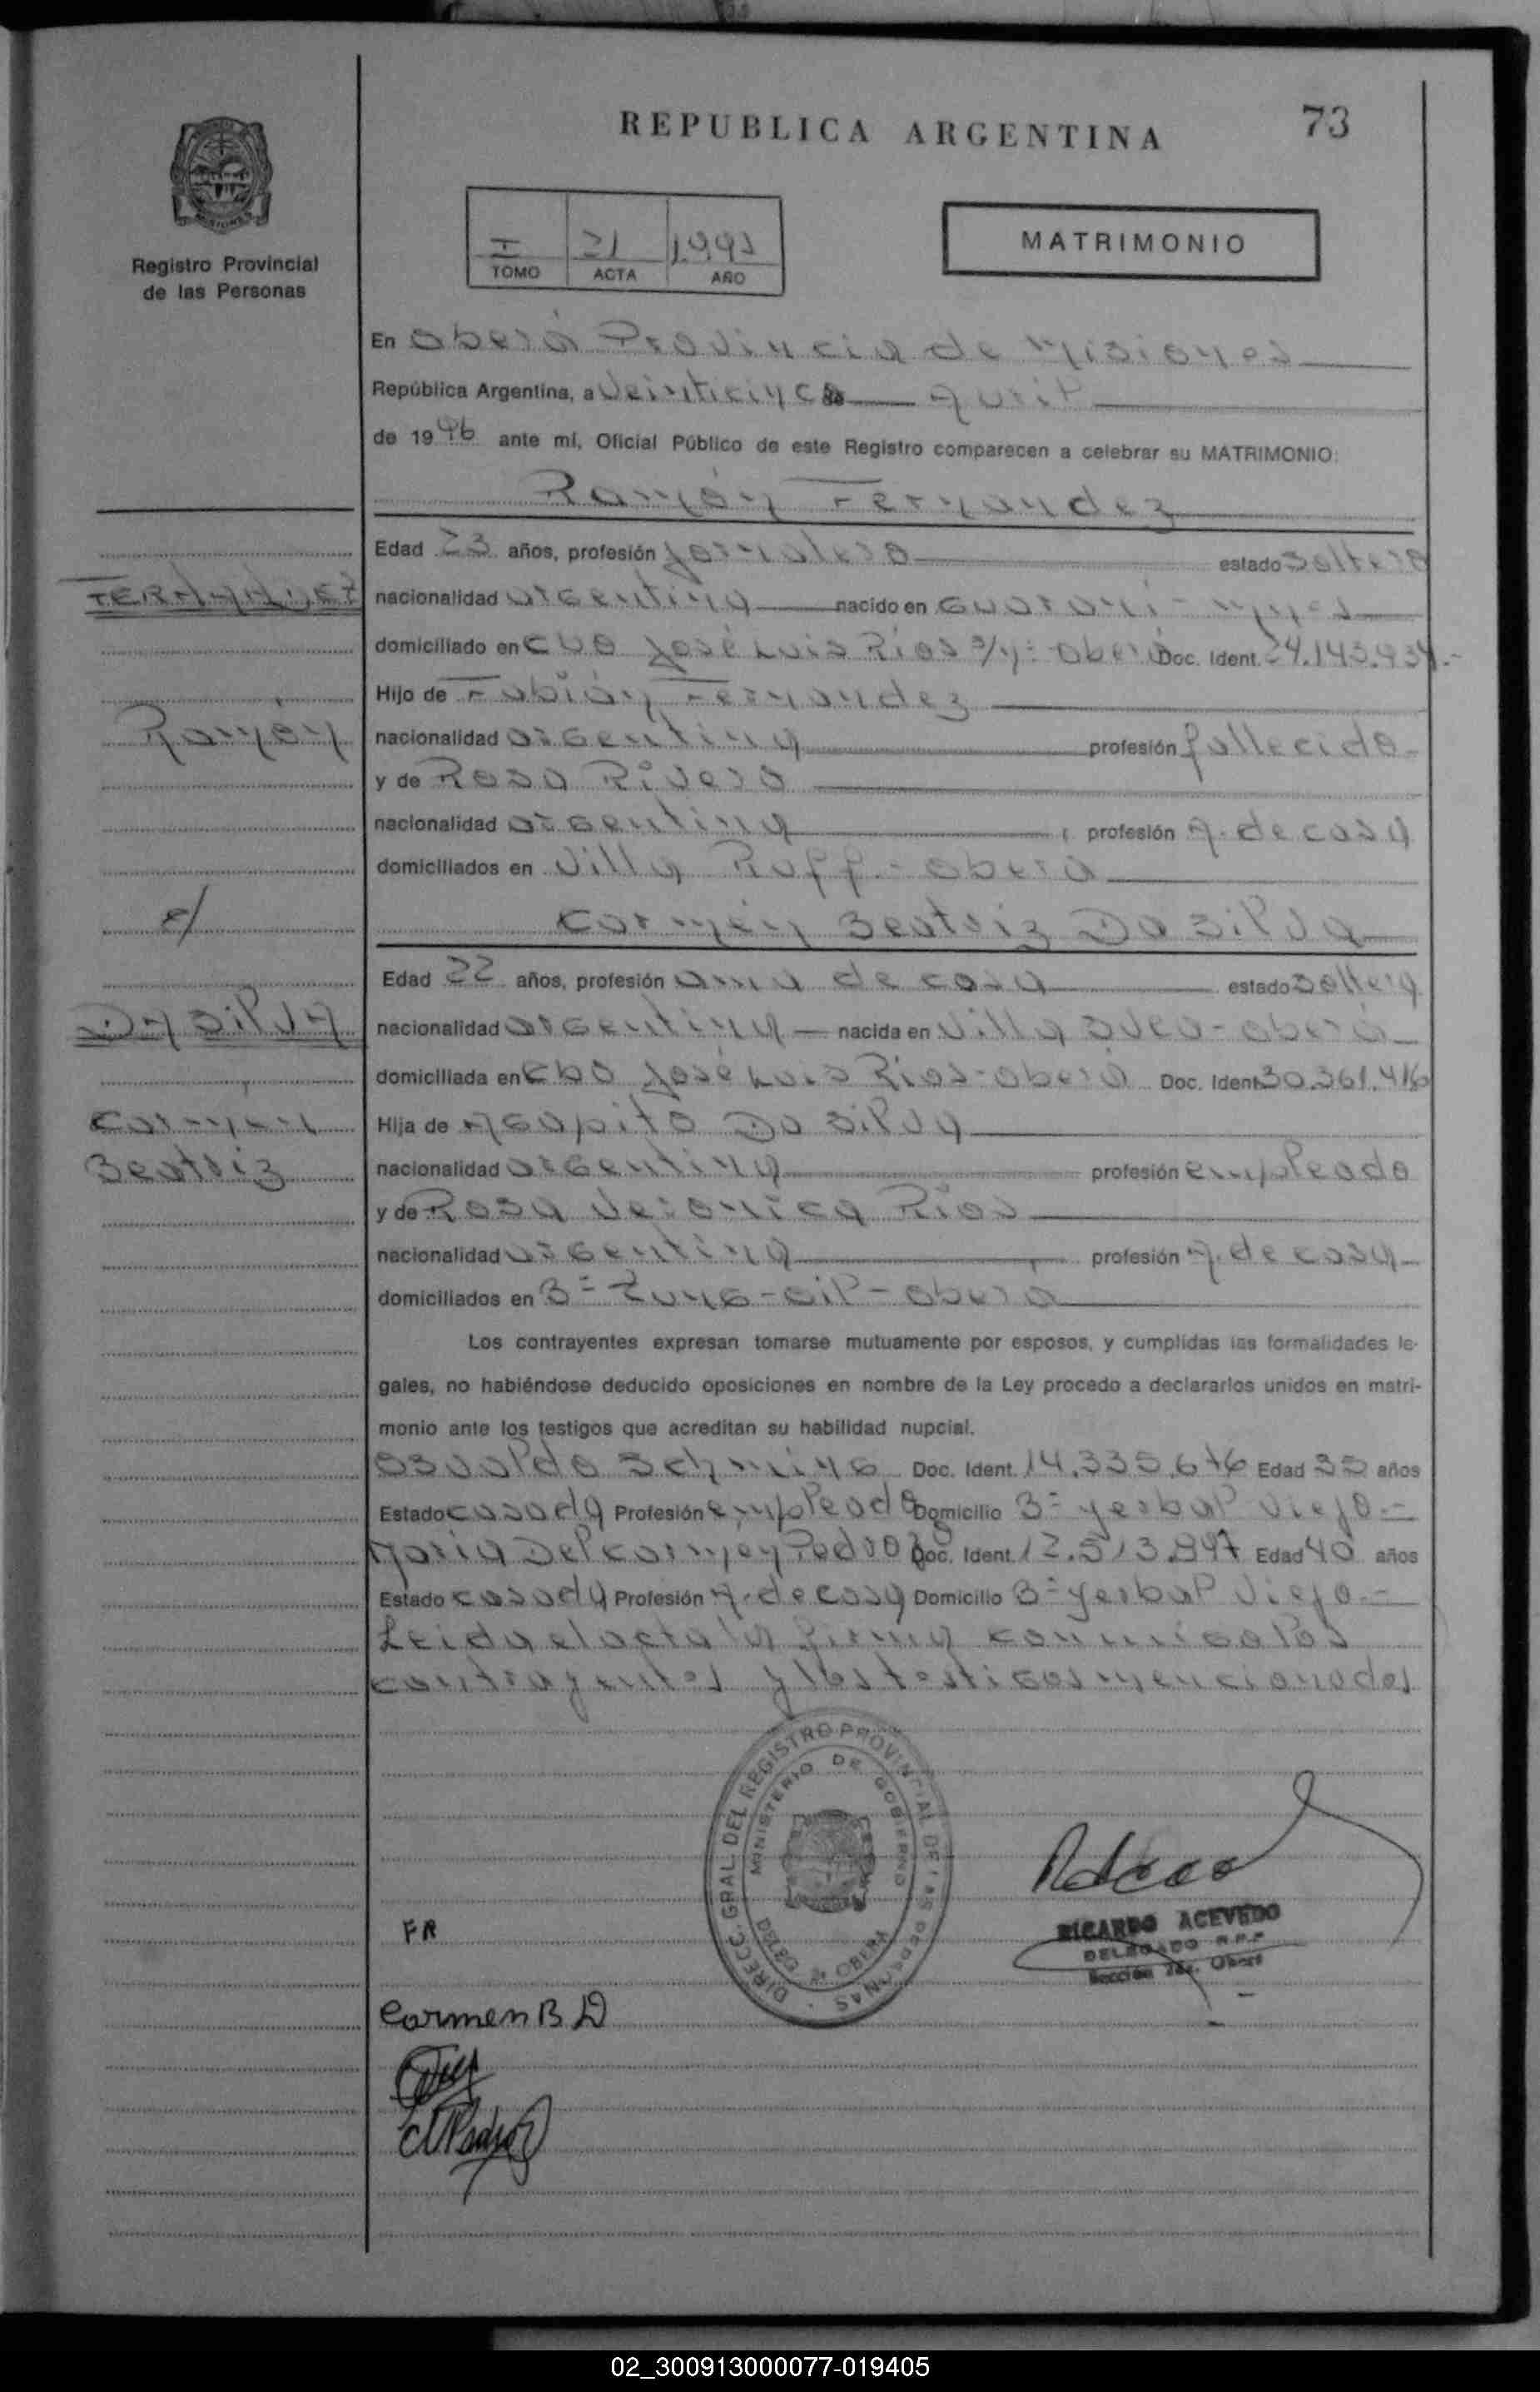 REPUBLICA ARGENTINA
73
Registro Provincial
de las Personas
I 21
TOMO ACTA AÑO
MATRIMONIO
En Oberá Provincia de Misiones
República Argentina, a Veinticinco de Abril
de 1996 ante mí, Oficial Público de este Registro comparecen a celebrar su MATRIMONIO:
Ramón Fernandez
Edad 23 años, profesión Jornalero estado soltero
FERNANDEZ
nacionalidad argentina nacido en Guaraní - Mnes
domiciliado en José Luis Ríos s/n: Oberá Doc. Ident. 24.143.934.-
Hijo de Fabián Fernandez
Ramón
nacionalidad argentina profesión fallecido -
y de Rosa Rivero
nacionalidad argentina, profesión A. de casa
domiciliados en Villa Ruff.- Oberá
c/
Carmen Beatriz Da Silva
Edad 22 años, profesión ama de casa estado soltera
DA SILVA
nacionalidad argentina nacida en Villa - Oberá
domiciliada en José Luis Ríos - Oberá Doc. Ident 30.361.416
Carmen
Hija de Agapito Da Silva
Beatriz
nacionalidad argentina profesión empleado
y de Rosa Veronica Ríos
nacionalidad argentina, profesión A. de casa
domiciliados en - Oberá
Los contrayentes expresan tomarse mutuamente por esposos, y cumplidas las formalidades le-
gales, no habiéndose deducido oposiciones en nombre de la Ley procedo a declararlos unidos en matri-
monio ante los testigos que acreditan su habilidad nupcial.
Osvaldo Doc. Ident. 14.335.676 Edad 35 años
Estado casado Profesión empleado Domicilio Bº Yerbal Viejo.-
Maria Del Carmen Pedrozo Doc. Ident. 12.513.897 Edad 40 años
Estado casada Profesión A. de casa Domicilio Bº Yerbal Viejo.-
Leida el acta la firman conmigo los
contrayentes y los testigos mencionados
DIRECC. GRAL. DEL REGISTRO PROVINCIAL DE LAS PERSONAS
MINISTERIO DE GOBIERNO
OBERA
RICARDO ACEVEDO
DELEGADO R.P.P
Sección Oberá
FR
Carmen B D
02_300913000077-019405